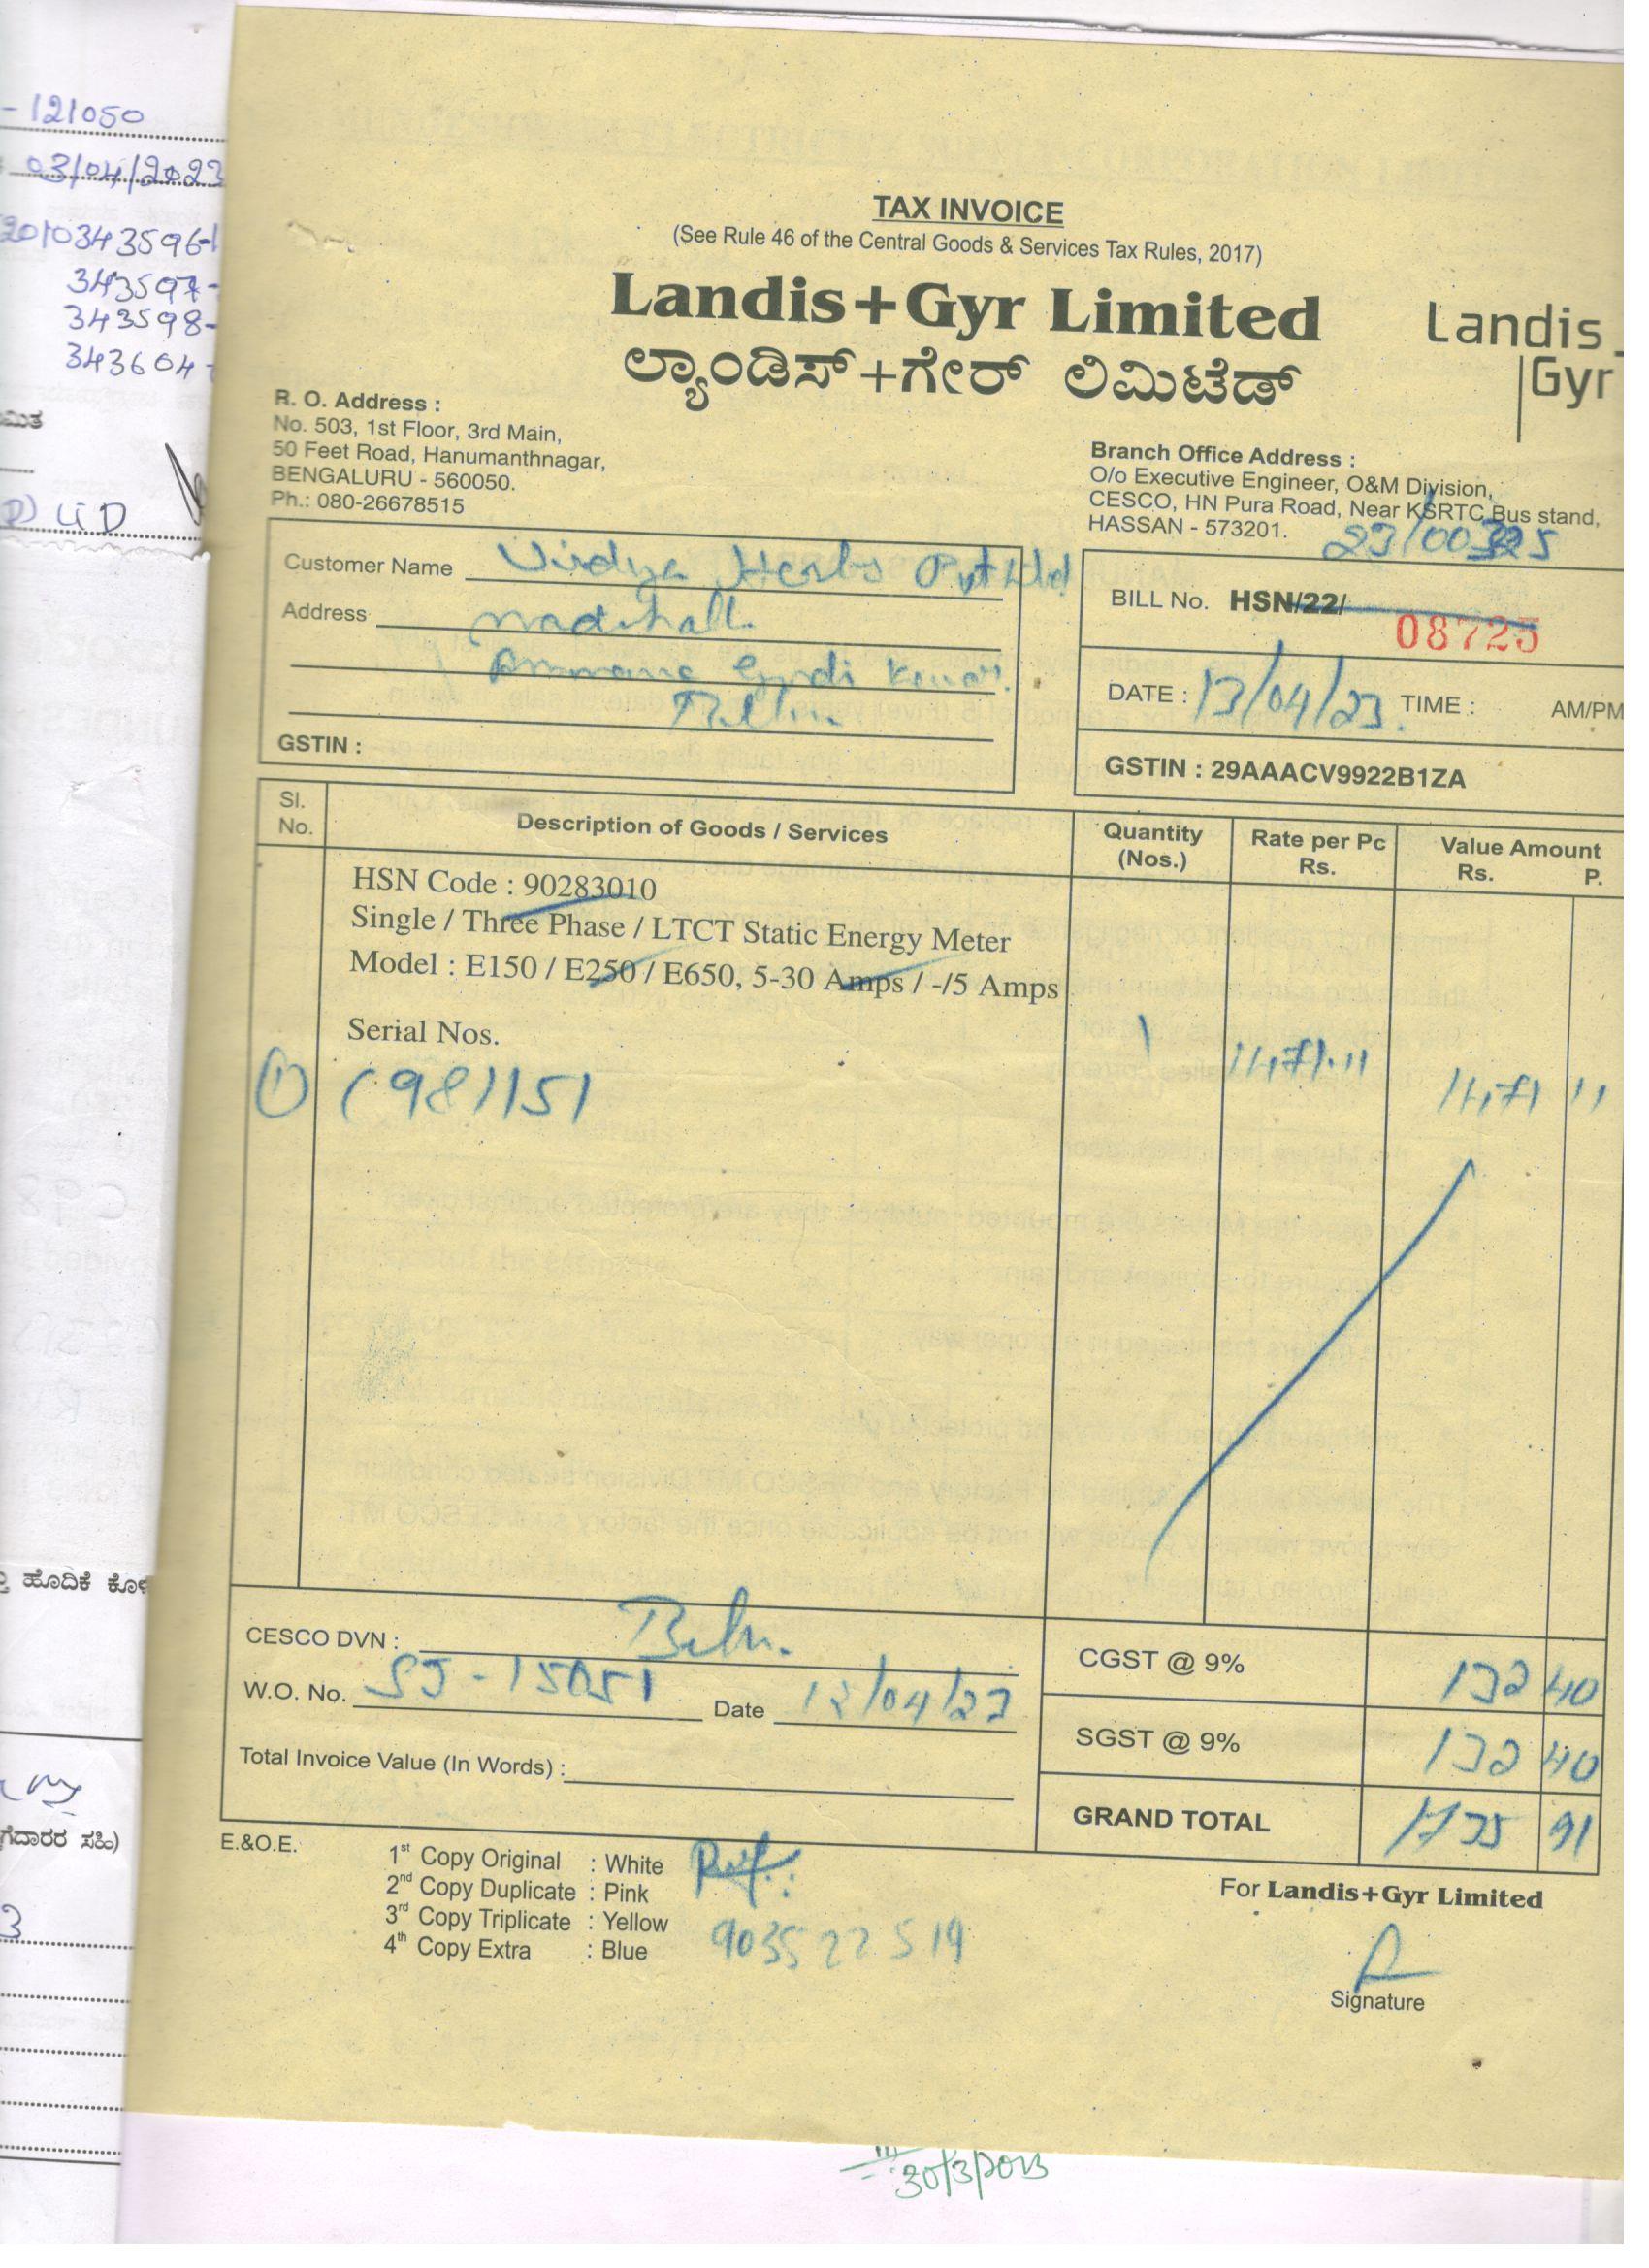 - 121050
03/04/2023
2010343596-1
343597-
343598-
343604-
ಮಿತ
TAX INVOICE
(See Rule 46 of the Central Goods & Services Tax Rules, 2017)
Landis+Gyr Limited
ಲ್ಯಾಂಡಿಸ್+ಗೇರ್ ಲಿಮಿಟೆಡ್
Landis
Gyr
R. O. Address :
No. 503, 1st Floor, 3rd Main,
50 Feet Road, Hanumanthnagar,
BENGALURU - 560050.
Ph.: 080-26678515
Branch Office Address :
O/o Executive Engineer, O&M Division,
CESCO, HN Pura Road, Near KSRTC Bus stand,
HASSAN - 573201.
Customer Name Vidya Herbs Pvt Ltd
Address
GSTIN :
23/00325
BILL No. HSN/22/
08725
DATE : 13/04/23 TIME : AM/PM
GSTIN : 29AAACV9922B1ZA
Sl. No. Description of Goods / Services Quantity (Nos.) Rate per Pc Rs. Value Amount Rs. P.
HSN Code : 90283010
Single / Three Phase / LTCT Static Energy Meter
Model : E150 / E250 / E650, 5-30 Amps / -/5 Amps
Serial Nos.
1) C981151 1 1471.11 1471 11
CESCO DVN : Belur
W.O. No. SJ-15051 Date 13/04/23
Total Invoice Value (In Words) :
CGST @ 9% 132 40
SGST @ 9% 132 40
GRAND TOTAL 1735 91
E.&O.E.
1st Copy Original : White
2nd Copy Duplicate : Pink
3rd Copy Triplicate : Yellow
4th Copy Extra : Blue
903522519
For Landis+Gyr Limited
Signature
ಹೊದಿಕೆ
ಸಹಿ)
30/3/2023